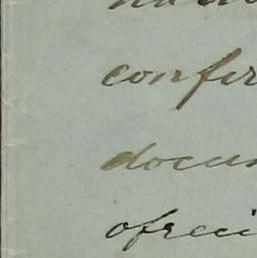 confir
docum
ofreci